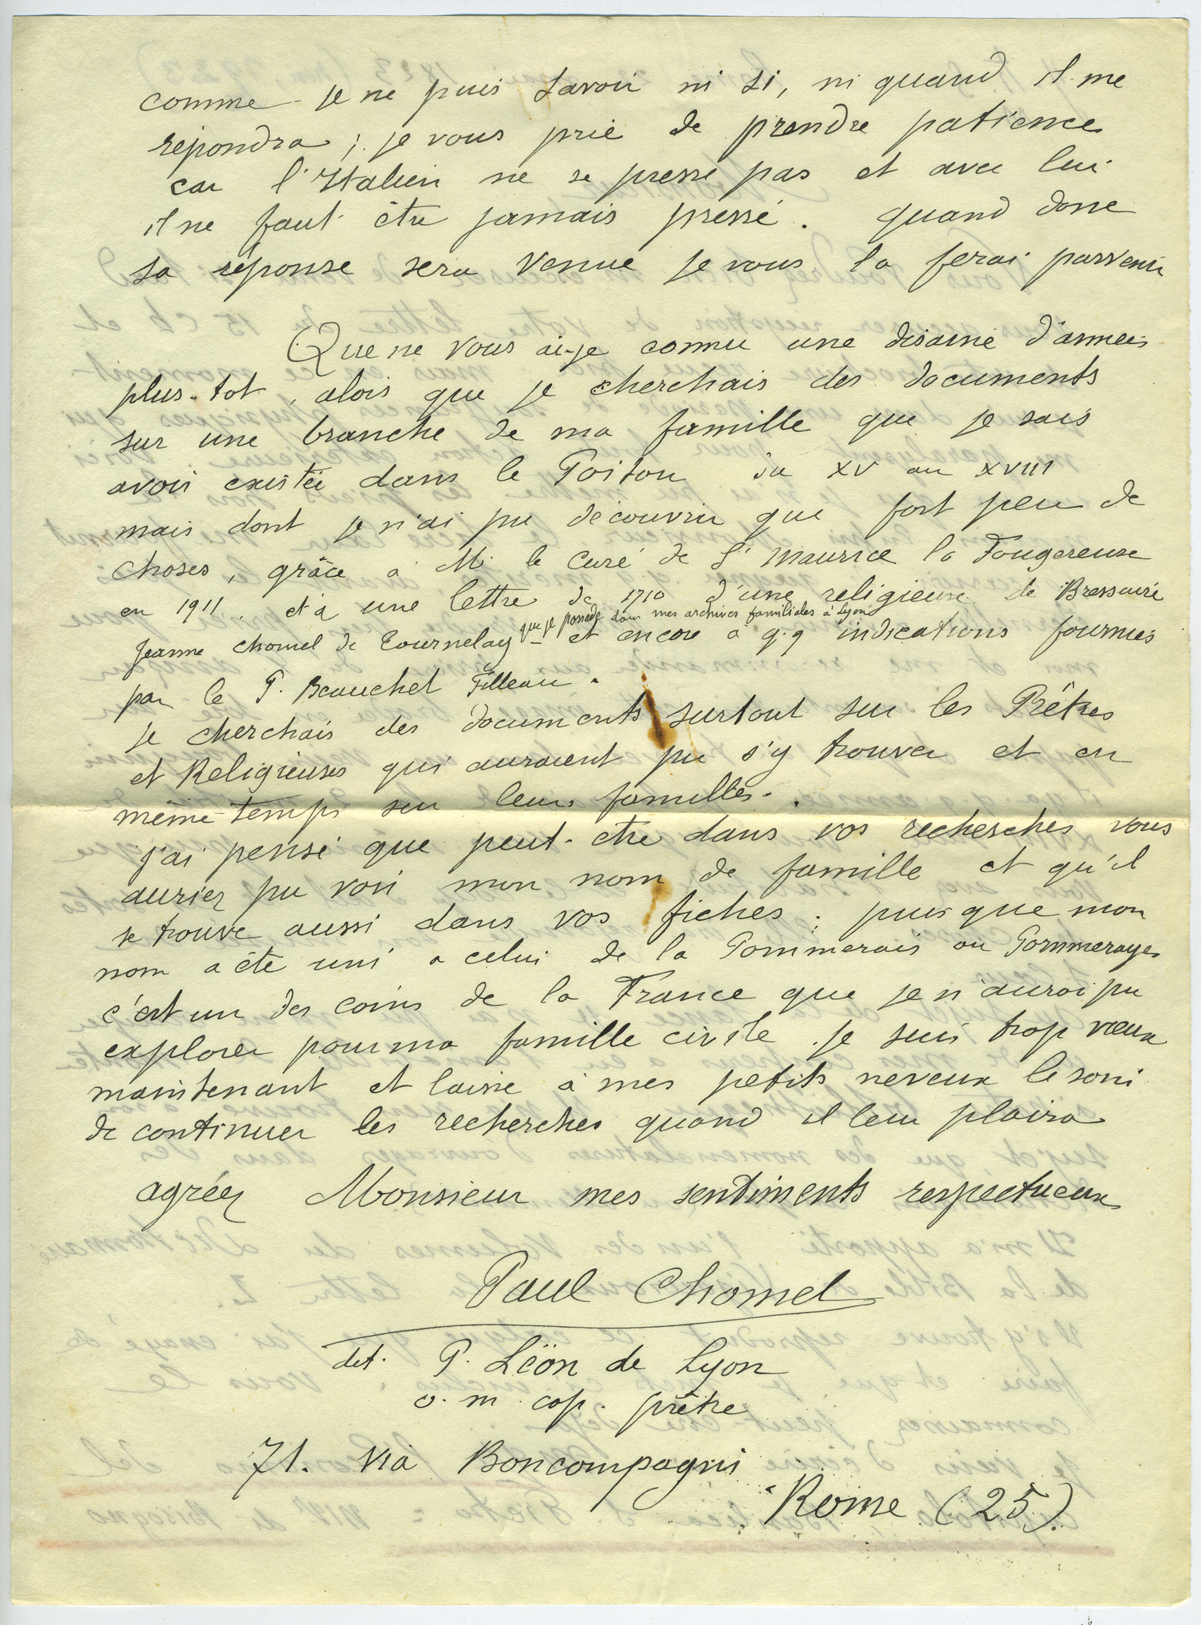 comme je ne puis savoir ni si, ni quand il me
répondra ; je vous prie de prendre patience
car l'Italien ne se presse pas et avec lui
il ne faut être jamais pressé. quand donc
sa réponse sera venue je vous la ferai parvenir
Que ne vous ai-je connu une disaine d'années
plus-tot, alois que je cherchais des documents
sur une branche de ma famille que je sais
avoir existée dans le Poitou du XV au XVIII
mais dont je n'ai pu découvrir que fort peu de
choses, grâce à Mr le Curé de St Maurice la Fougereuse
en 1911, et à une lettre de 1710 d'une religieuse de Bressuire
que je possède dans mes archives familiales à Lyon
Jeanne Chomel de Tournelay et encore à q.q indications fournies
par le P. Beauchet Filleau.
je cherchais des documents surtout sur les Prêtres
et Religieuses qui auraient pu s'y trouver et en
même temps sur leurs familles.
j'ai pensé que peut-etre dans vos recherches vous
auriez pu voir mon nom de famille et qu'il
se trouve aussi dans vos fiches ; puisque mon
nom a été uni a celui de la Pommerais ou Pommerayes
c'est un des coins de la France que je n'aurai pu
explorer pour ma famille civile. je suis trop vieux
maintenant et laisse à mes petits neveux le soin
de continuer les recherches quand il leur plaira
agréez Monsieur mes sentiments respectueux
Paul Chomel
det. P. Léon de Lyon
o. m cap. prêtre
71. via Boncompagni
Rome (25).